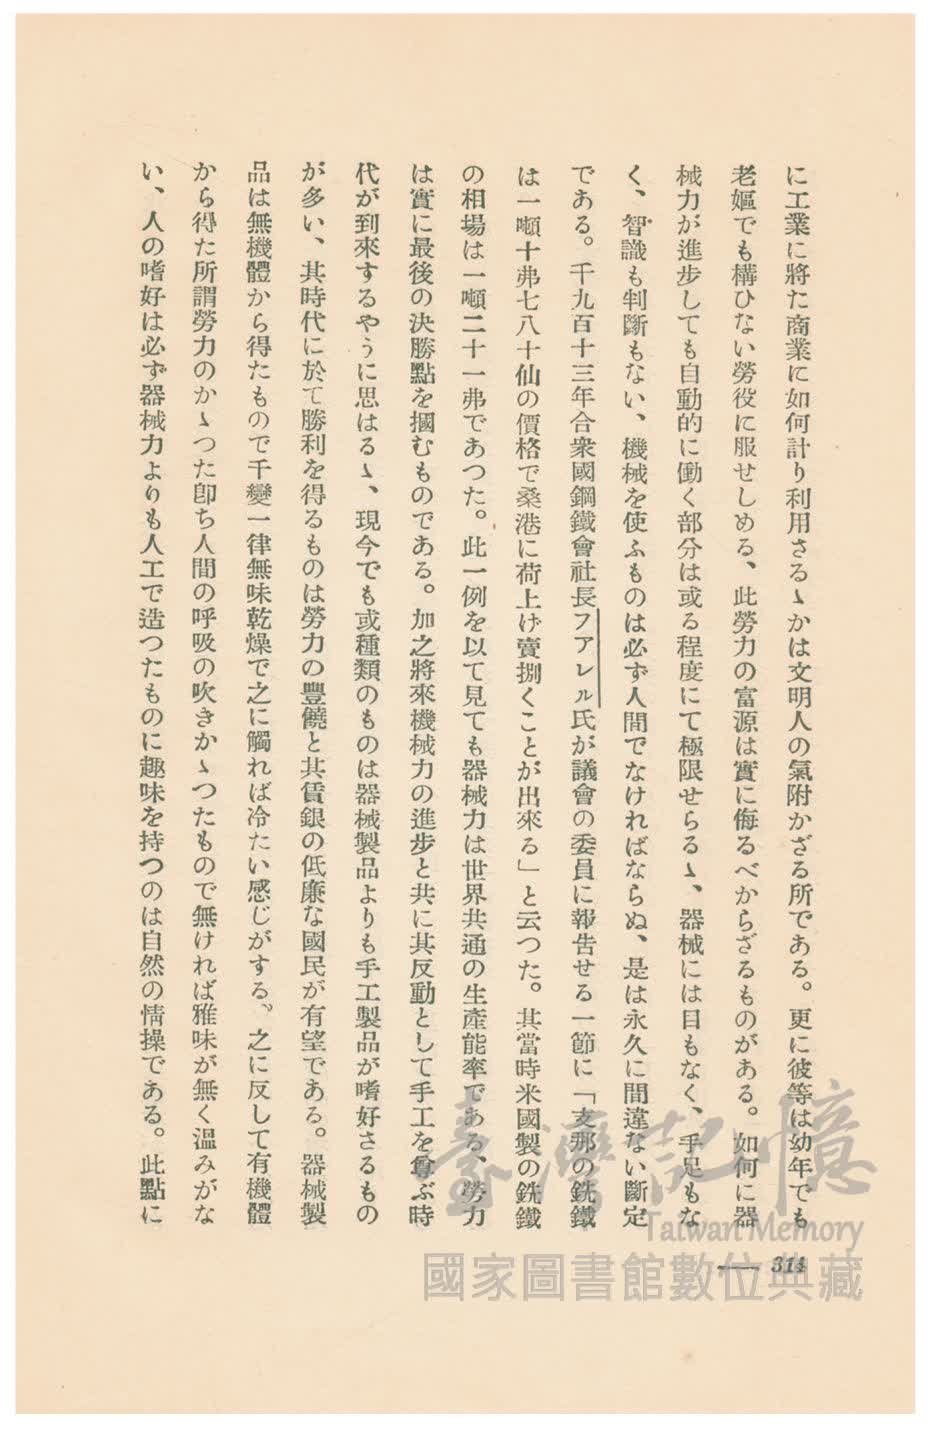 に工業に將た商業に如何計り利用さるゝかは文明人の氣附かざる所である。更に彼等は幼年でも
老嫗でも構ひない勞役に服せしめる、此勞力の富源は實に侮るべからざるものがある。如何に器
械力が進步しても自動的に働く部分は或る程度にて極限せらるゝ、器械には目もなく、手足もな
く、智識も判斷もない、機械を使ふものは必ず人間でなければならぬ、是は永久に間違ない斷定
である。千九百十三年合衆國鋼鐵會社長フアレル氏が議會の委員に報告せる一節に「支那の銑鐵
は一噸十弗七八十仙の價格で桑港に荷上げ賣捌くことが出來る」と云つた。其當時米國製の銑鐵
の相場は一噸二十一弗であつた。此一例を以て見ても器械力は世界共通の生產能率である、勞力
は實に最後の決勝點を摑むものである。加之將來機械力の進步と共に其反動として手工を尊ぶ時
代が到來するやうに思はるゝ、現今でも或種類のものは器械製品よりも手工製品が嗜好さるもの
が多い、其時代に於て勝利を得るものは勞力の豐饒と其賃銀の低廉な國民が有望である。器械製
品は無機體から得たもので千變一律無味乾燥で之に觸れば冷たい感じがする。之に反して有機體
から得た所謂勞力のかゝつた卽ち人間の呼吸の吹きかゝつたもので無ければ雅味が無く溫みがな
い、人の嗜好は必ず器械力よりも人工で造つたものに趣味を持つのは自然の情操である。此點に
314
臺灣記憶
Taiwan Memory
國家圖書館數位典藏